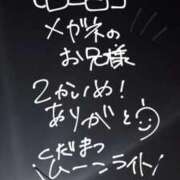 メガネの
お兄様
2かいめ!
ありがと
くだまつ
\ひーンライト/